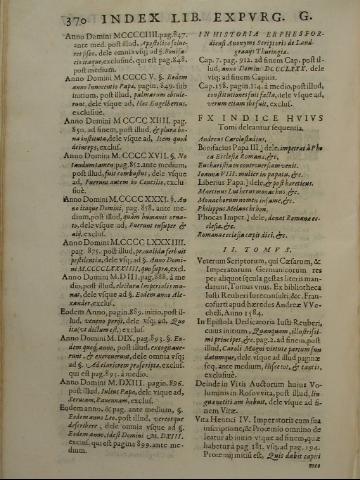 370 INDEX LIB. EXPVRG. G.
Anno Domini M CCCCIIII. pag. 847.
ante med. post illud, Apostolica solue-
ret ipso, dele omnia vsq; ad §. Bonifa-
cio itaque, exclusiuè, qui est pag. 848.
post medium.
Anno Domini M CCCC V. §. Eodem
anno Innocentio Papa, pag. 849. sub
initium, post illud, palmarum abscide-
runt, dele vsque ad, Hoc Engelbertus,
exclusiuè.
Anno Domini M CCCC XIIII. pag.
850. ad finem, post illud, & plura bo-
na instituenda, dele vsque ad, Item quod
deinceps, exclus.
Anno Domini M CCCC XVII. §. No-
tandum tamen pag. 852. ante medium,
post illud, fuit combustus, dele vsque
ad, Fuerunt autem in Concilio, exclu-
siuè.
Anno Domini M CCCC XXXI. §. An-
no itaque Domini, pag. 858. ante me-
dium, post illud, quàm humanis orna-
to, dele vsque ad, Fuerunt insuper &
alij, exclus.
Anno Domini M CCCC LXXXIIII.
pag. 875. post illud, praeualida saeuiit
pestilentia, dele vsque ad §. Anno Domi-
ni M CCCCLXXXIIII, an supra, excl.
Anno Domini M. D III. pag. 888. à me-
dio, post illud, electura Imperialis ma-
nat, dele vsque ad §. Eodem anno Ale-
xander, exclus.
Eodem Anno, pagin. 889. initio, post il-
lud, veneno perijt, dele vsq; ad. Quo
ita vt dictum est; exclus.
Anno Domini M. DIX. pag. 893. §. Eo-
dem anno quod, post illud, excogitaue-
runt, & exercuerunt, dele omnia vsq;
ad §. Ad tertiorem prescripta, exclus.
qui est pag. 895. à medio.
Anno Domini M. DXIII. pagin. 896.
post illud, Iulius Papa, dele vsque ad,
Veterum, Pauennam, exclus.
Eodem anno, & pag. ante medium, §.
Eodem anno Leo, post illud, vtrosque
describere, dele omnia vsque ad §.
Eodem anno, id est Domini M. DXIII.
exclus. qui est pagina 899. ante me-
dium.
IN HISTORIA ERPHESFOR-
diensi Anonymi Scriptoris de Land-
grauijs Thuringiae.
Cap. 7. pag. 912. ad finem Cap. post il-
lud, anno Domini DCCCLXX. dele
vsq; ad finem Capitis.
Cap. 158. pagin. 114. à medio, post illud,
constitutiones sui festa, dele vsque ad,
verum etiam ibi fuit, exclus.
EX INDICE HVIVS
Tomi deleantur sequentia.
Andreas Carolstadius,
Bonifacius Papa III. ] dele, imperat à Pho-
ca Ecclesia Romana, &c.
Eucharistia in controuersiam venit.
Ioanna VIII. mulier in papatu, &c.
Liberius Papa. ] dele, & post haereticus.
Martinus Luther monachus, &c.
Monachorum monstra in fame, &c.
Philippus Melanchthon.
Phocas Imper. ] dele, donat Romanae ec-
clesiae, &c.
Romanae ecclesiae capti dici, &c.
II. TOMVS.
Veterum Scriptorum, qui Cæsarum, &
Imperatorum Germanicorum res
per aliquot sæcula gestas literis man-
darunt, Tomus vnus. Ex bibliotheca
Iusti Reuberi Iureconsulti &c. Fran-
cofurti apud hæredes Andreæ VVe-
cheli, Anno 1584.
In Epistola Dedicatoria Iusti Reuberi,
cuius initium, Quanquam, illustrissi-
mi principes, &c. pag. 2. ad finem, post
illud, Caroli Magni virtute partum sun-
datumque, dele vsque ad illud paginæ
seq. ante medium, Is sicut, & tantis,
exclusiuè.
Deinde in Vitis Auctorum huius Vo-
luminis in Rosovvita, post illud, sin-
gula netti am habuit, dele vsque ad fi-
nem Vitæ.
Vita Henrici IV. Imperatoris cum sua
inscriptione, & Proœmio omnino de-
leatur ab initio vsque ad finem, quæ
habetur à pag. 181. vsque ad pag. 194.
Proœmij initium est, Quis dabit capiti
meo